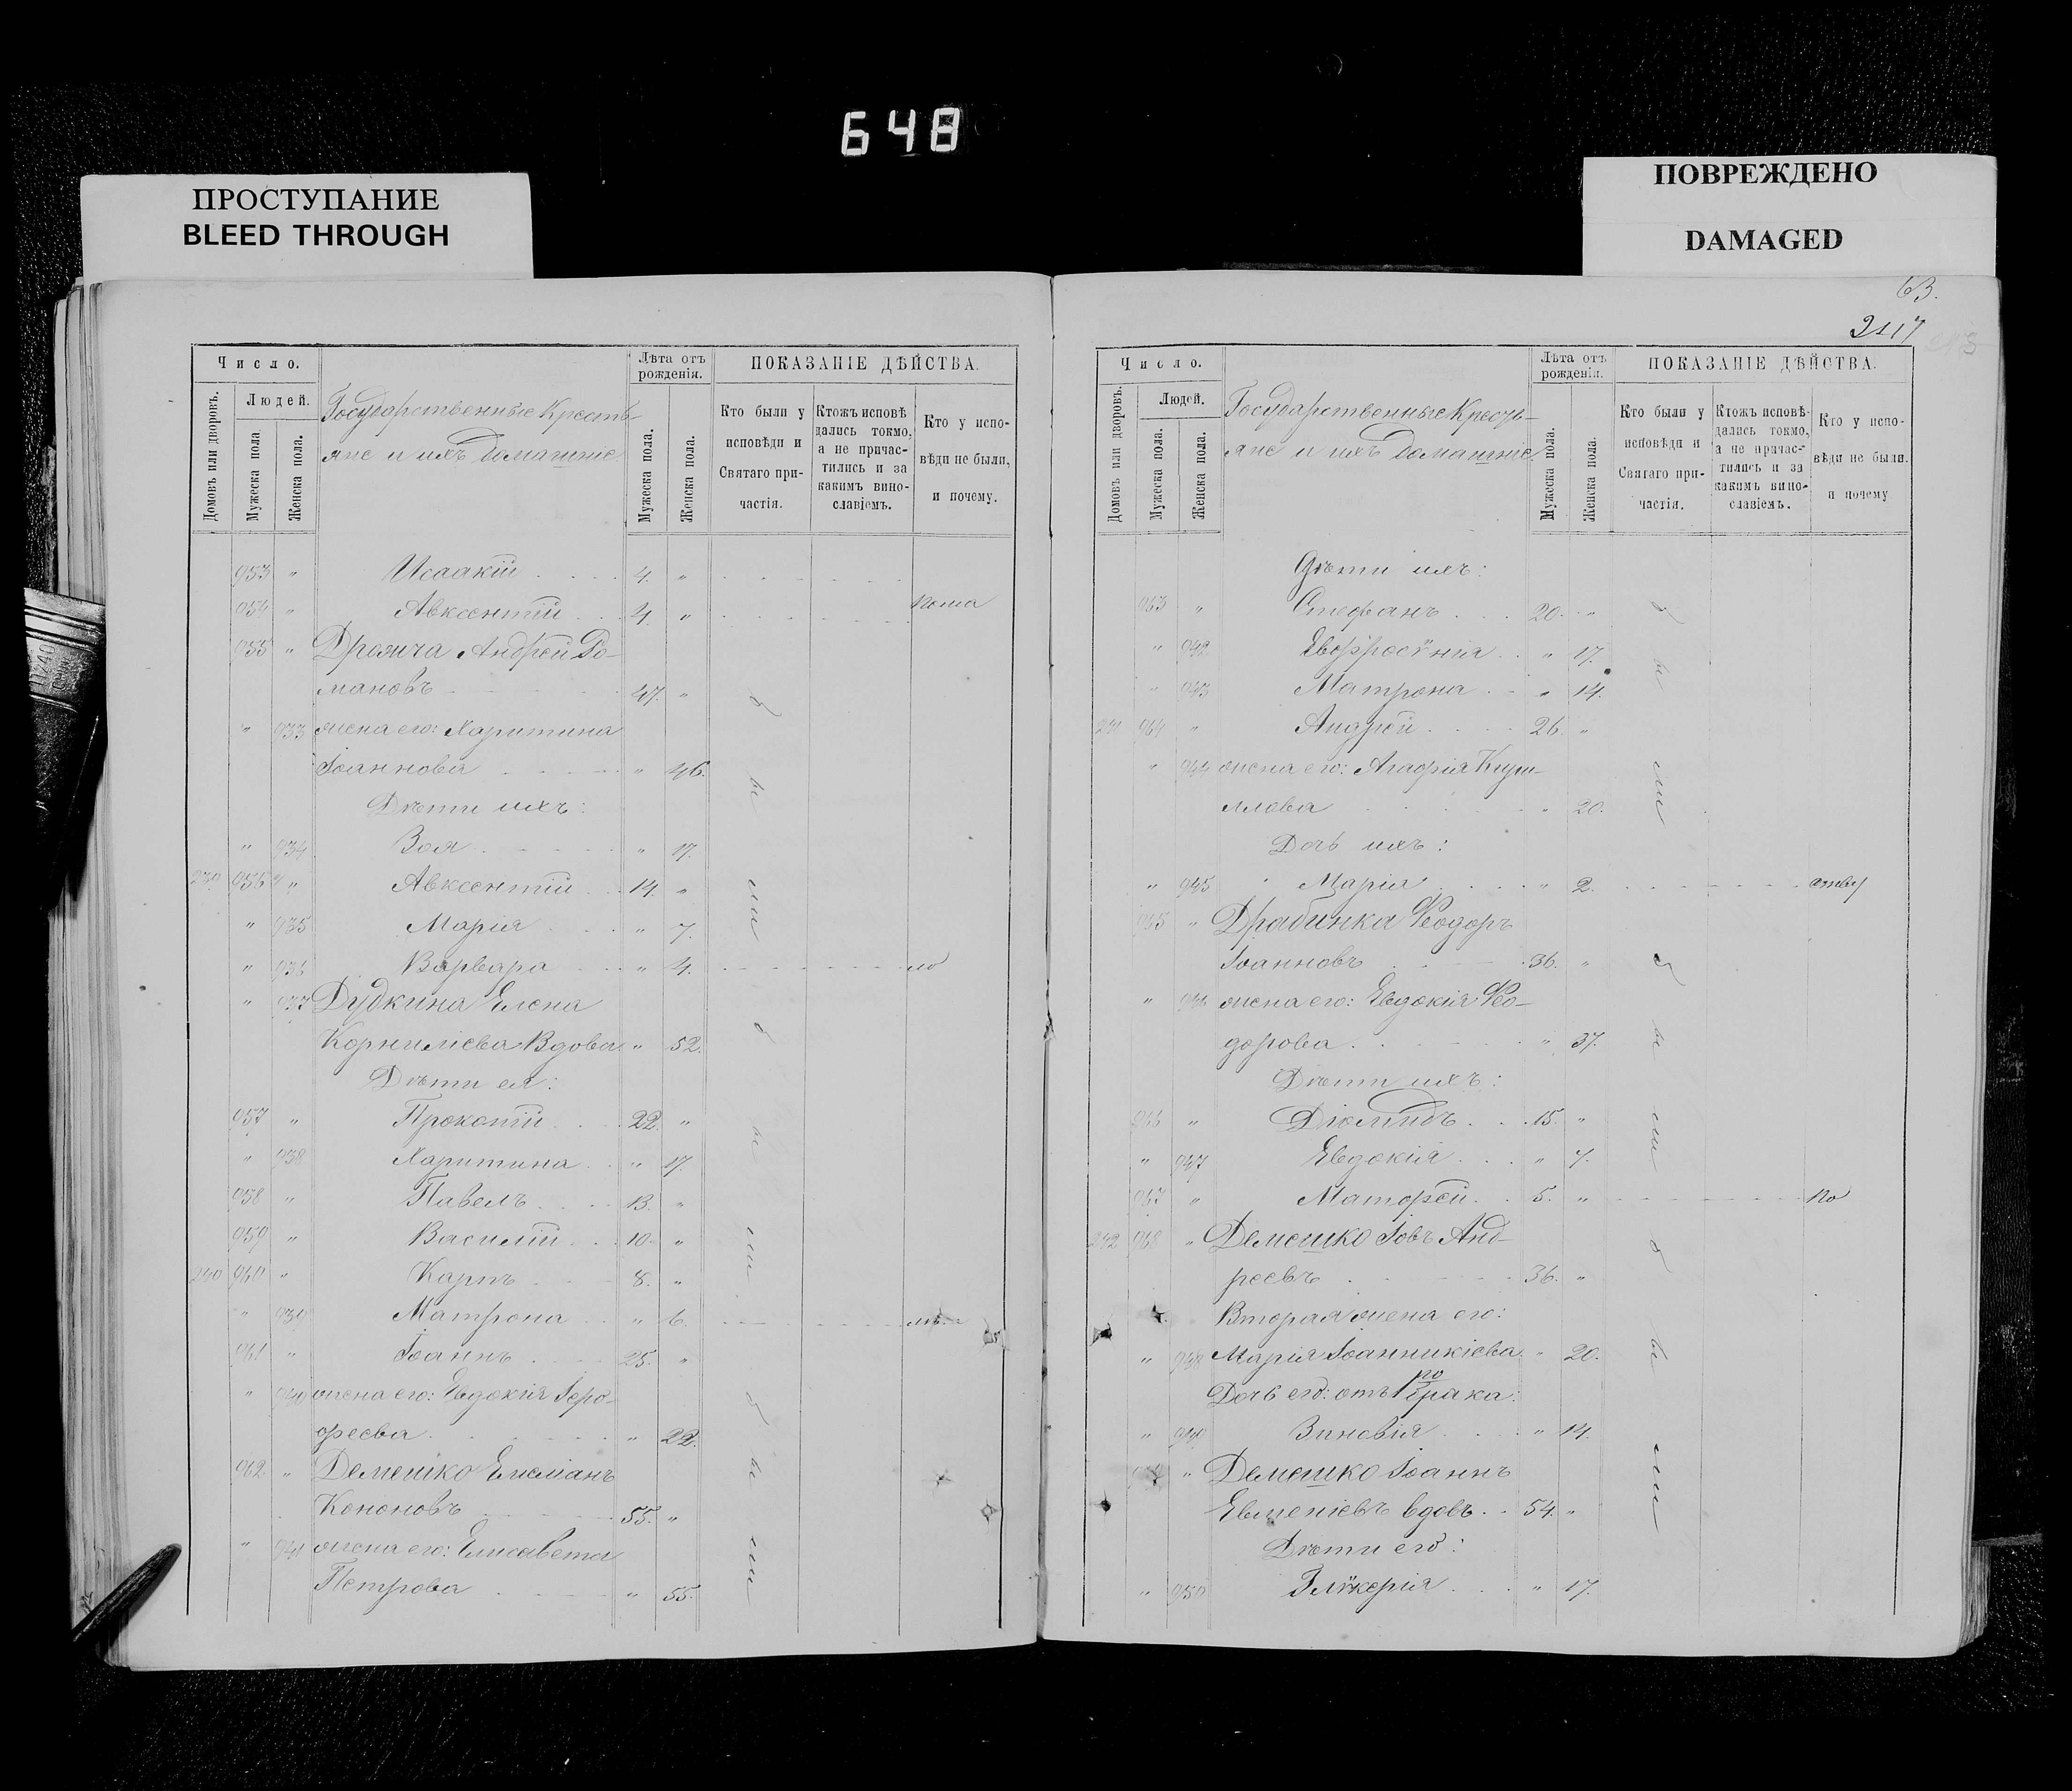 648
ПРОСТУПАНИЕ
BLEED THROUGH
ПОВРЕЖДЕНО
DAMAGED
63.
Число.
Людей.
Домовъ или дворовъ.
Мужеска пола
Женска пола.
Государственные Кресть-
яне и ихъ домашніе
Лѣта отъ рожденія.
Мужеска пола.
Женска пола.
ПОКАЗАНІЕ ДѢЙСТВА.
Кто были у исповѣди и Святаго причастія.
Ктожъ исповѣдались токмо, а не причастились и за какимъ винославіемъ.
Кто у исповѣди не были, и почему.
953 " Исаакій 4. "
954 " Авксентій 4. "
955 " Андрей Ро-
мановъ 47. "
" 933 жена его: Харитина
Іоаннова " 46.
Дѣти ихъ:
" 934 Зоя " 17.
239 956 " Авксентій 14. "
" 935 Марія " 7.
" 936 Варвара " 4.
" 937 Дудкина Елена
Корниліева Вдова " 52.
Дѣти ея:
957 " Прокопій 22. "
" 938 Харитина " 17.
958 " Павелъ 13. "
959 " Василій 10. "
240 960 " Карпъ 8. "
" 939 Матрона " 6.
961 " Іоаннъ 25. "
" 940 жена его: Евдокія Іеро-
феева " 22.
962 " Демешко Емеліанъ
Кононовъ 55. "
" 941 жена его: Елисавета
Петрова " 55.
были
Число.
Людей.
Домовъ или дворовъ.
Мужеска пола.
Женска пола.
Государственные Кресть-
яне и ихъ домашніе
Лѣта отъ рожденія.
Мужеска пола.
Женска пола.
ПОКАЗАНІЕ ДѢЙСТВА.
Кто были у исповѣди и Святаго причастія.
Ктожъ исповѣдались токмо, а не причастились и за какимъ винославіемъ.
Кто у исповѣди не были. и почему
Дѣти ихъ:
963 " Стефанъ 20. "
" 942 Евфросѵнія " 17.
" 943 Матрона " 14.
241 964 " Андрей 26. "
" 944 жена его: Агафія Кири-
ллова " 20.
Дочь ихъ:
" 945 Марія " 2.
965 " Драбинка Ѳеодоръ
Іоанновъ 36. "
" 946 жена его: Евдокія Ѳео-
дорова " 37.
Дѣти ихъ:
966 " Діомидъ 15. "
" 947 Евдокія " 7.
967 " Матфей 5. "
242 968 " Демешко Іовъ Анд-
реевъ 36. "
Вторая жена его:
" 948 Марія Іоанникіева " 20.
Дочь его: отъ 1го брака:
" 949 Зиновія " 14.
" Демешко Іоаннъ
Евменіевъ вдовъ 54. "
Дѣти его:
" 950 Глѵкерія " 17.
были